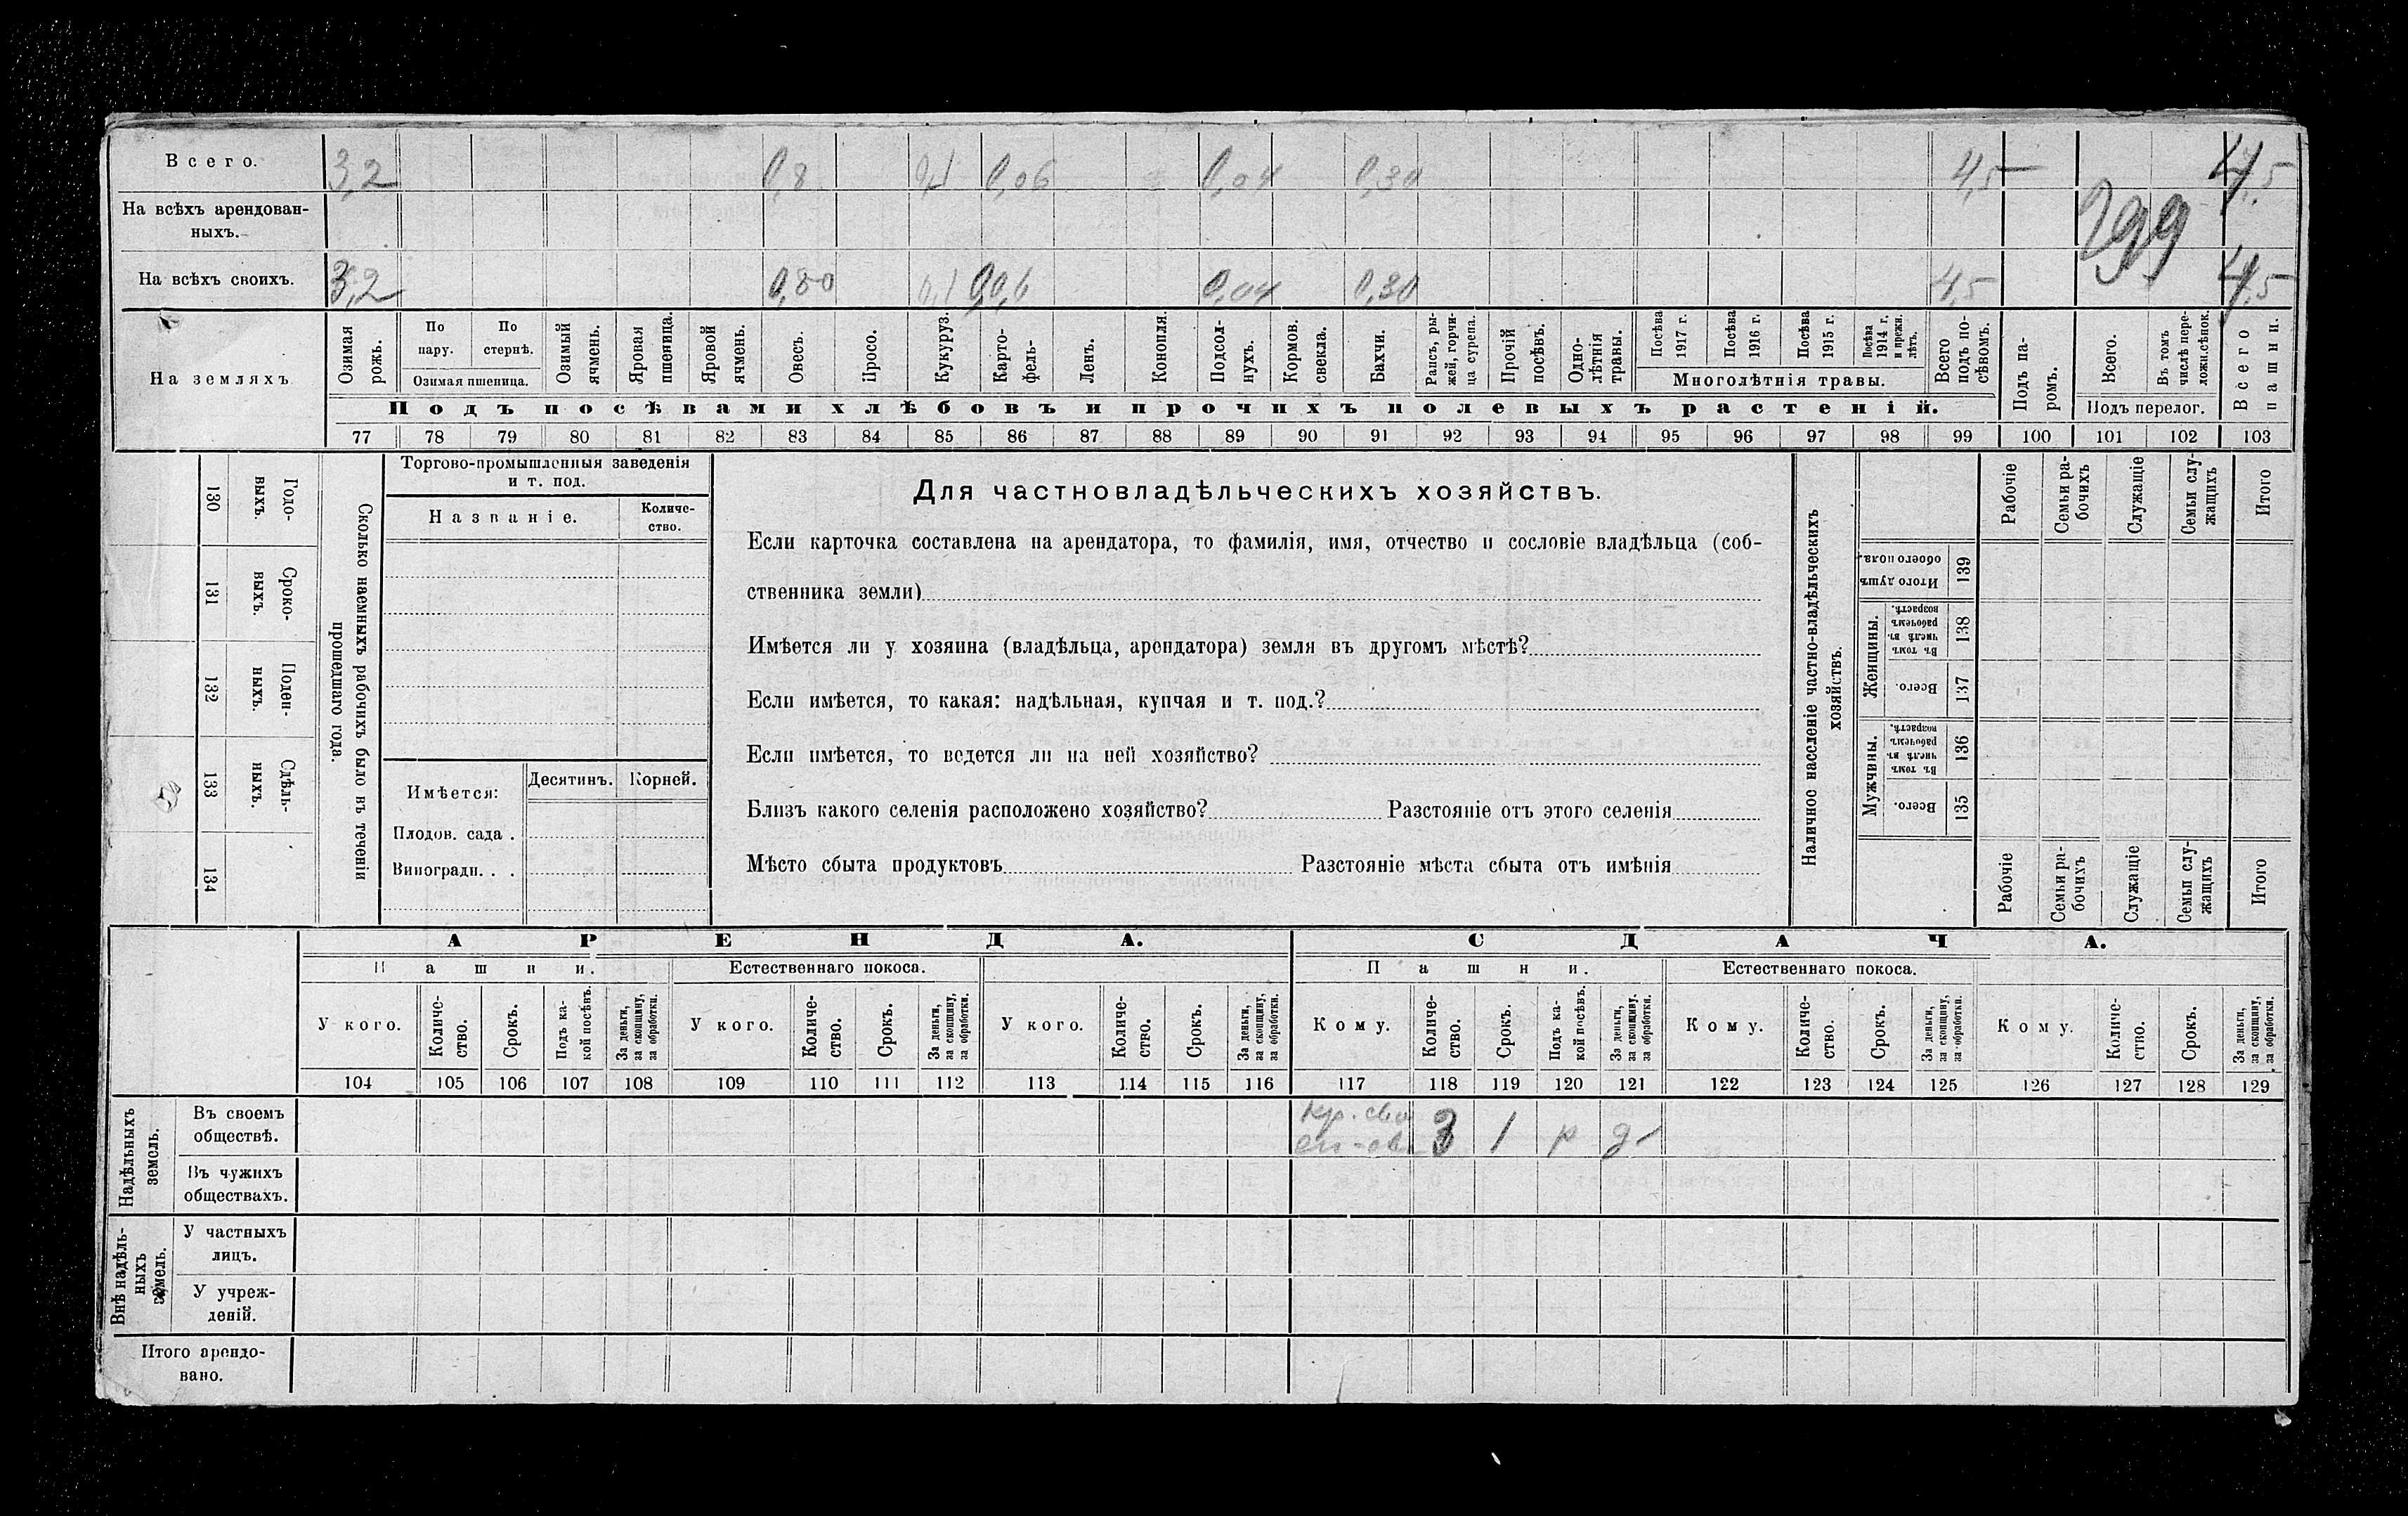 Всего. 3,2 0,8 0,1 0,06 0,04 0,30 4,5 4,5
На всѣхъ арендован-
ныхъ.
299
На всѣхъ своихъ. 3,2 0,80 0,1 0,06 0,04 0,30 4,5 4,5
На земляхъ
Озимая рожь.
По пару.
По стернѣ.
Озимая пшеница.
Озимый ячмень.
Яровая пшеница.
Яровой ячмень.
Овесъ.
Просо.
Кукуруз.
Карто-
фель-
Ленъ.
Конопля.
Подсол-
нухъ.
Кормов. свекла.
Бахчи.
Рапсъ, ры-
жей, горчи-
ца сурепа.
Прочій посѣвъ.
Одно-
лѣтнія травы.
Посѣва 1917 г.
Посѣва 1916 г.
Посѣва 1915 г.
Посѣва 1914 г. и прежн. лѣтъ.
Многолѣтнія травы.
Всего подъ по-
сѣвомъ.
Подъ па-
ромъ.
Всего.
Въ томъ числѣ пере-
ложн.сѣнок.
Подъ перелог.
Всего пашни.
Подъ посѣвами хлѣбовъ и прочихъ полевыхъ растеній.
77 78 79 80 81 82 83 84 85 86 87 88 89 90 91 92 93 94 95 96 97 98 99 100 101 102 103
130 Годо-
выхъ.
131 Сроко-
выхъ.
132 Поден-
ныхъ.
133 Сдѣль-
ныхъ.
134
Сколько наемныхъ рабочихъ было въ теченіи
прошедшаго года.
Торгово-промышленныя заведенія
и т. под.
Названіе.
Количе-
ство.
Имѣется: Десятинъ. Корней.
Плодов. сада .
Виноградн. . .
Для частновладѣльческихъ хозяйствъ.
Если карточка составлена на арендатора, то фамилія, имя, отчество и сословіе владѣльца (соб-
ственника земли)
Имѣется ли у хозяина (владѣльца, арендатора) земля въ другомъ мѣстѣ?
Если имѣется, то какая: надѣльная, купчая и т. под.?
Если имѣется, то ведется ли на ней хозяйство?
Близъ какого селенія расположено хозяйство? Разстояніе отъ этого селенія
Мѣсто сбыта продуктовъ Разстояніе мѣста сбыта отъ имѣнія
Наличное населеніе частно-владѣльческихъ
хозяйствъ.
Рабочіе
Семьи ра-
бочихъ
Служащіе
Семьи слу-
жащихъ
Итого
Итого душъ обоего пола. 139
Женщины.
Въ томъ числѣ въ рабочемъ возрастѣ. 138
Всего. 137
Мужчины.
Въ томъ числѣ въ рабочемъ возрастѣ. 136
Всего. 135
Рабочіе
Семьи ра-
бочихъ
Служащіе
Семьи слу-
жащихъ
Итого
АРЕНДА. СДАЧА.
Пашни. Естественнаго покоса. Пашни. Естественнаго покоса.
У кого.
Количе-
ство.
Срокъ.
Подъ ка-
кой посѣвъ.
За деньги, за скопщину, за обработки.
У кого.
Количе-
ство.
Срокъ.
За деньги, за скопщину, за обработки.
У кого.
Количе-
ство.
Срокъ.
За деньги, за скопщину, за обработки.
Кому.
Количе-
ство.
Срокъ.
Подъ ка-
кой посѣвъ.
За деньги, за скопщину, за обработки.
Кому.
Количе-
ство.
Срокъ.
За деньги, за скопщину, за обработки.
Кому.
Количе-
ство.
Срокъ.
За деньги, за скопщину, за обработки.
104 105 106 107 108 109 110 111 112 113 114 115 116 117 118 119 120 121 122 123 124 125 126 127 128 129
Надѣльныхъ
земель.
Въ своемъ
обществѣ.
кр. 3 1 р д
Въ чужихъ
обществахъ.
Внѣ надѣль-
ныхъ
земель.
У частныхъ
лицъ.
У учреж-
деній.
Итого арендо-
вано.